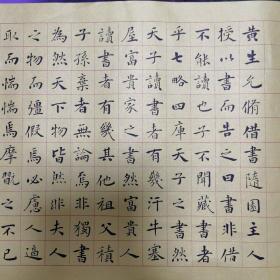 黄生允脩借書隨園主人
授以書而告之曰書非借
不能讀也子不聞藏書者
乎七略四庫天子之書然
天子讀書者有幾汗牛塞
屋富貴家之書然富貴人
讀書者有幾其他祖父積
子孫棄者無論焉非獨書
為然天下物皆然非夫人
之物而彊假焉必慮人逼
取而惴惴焉摩翫之不已